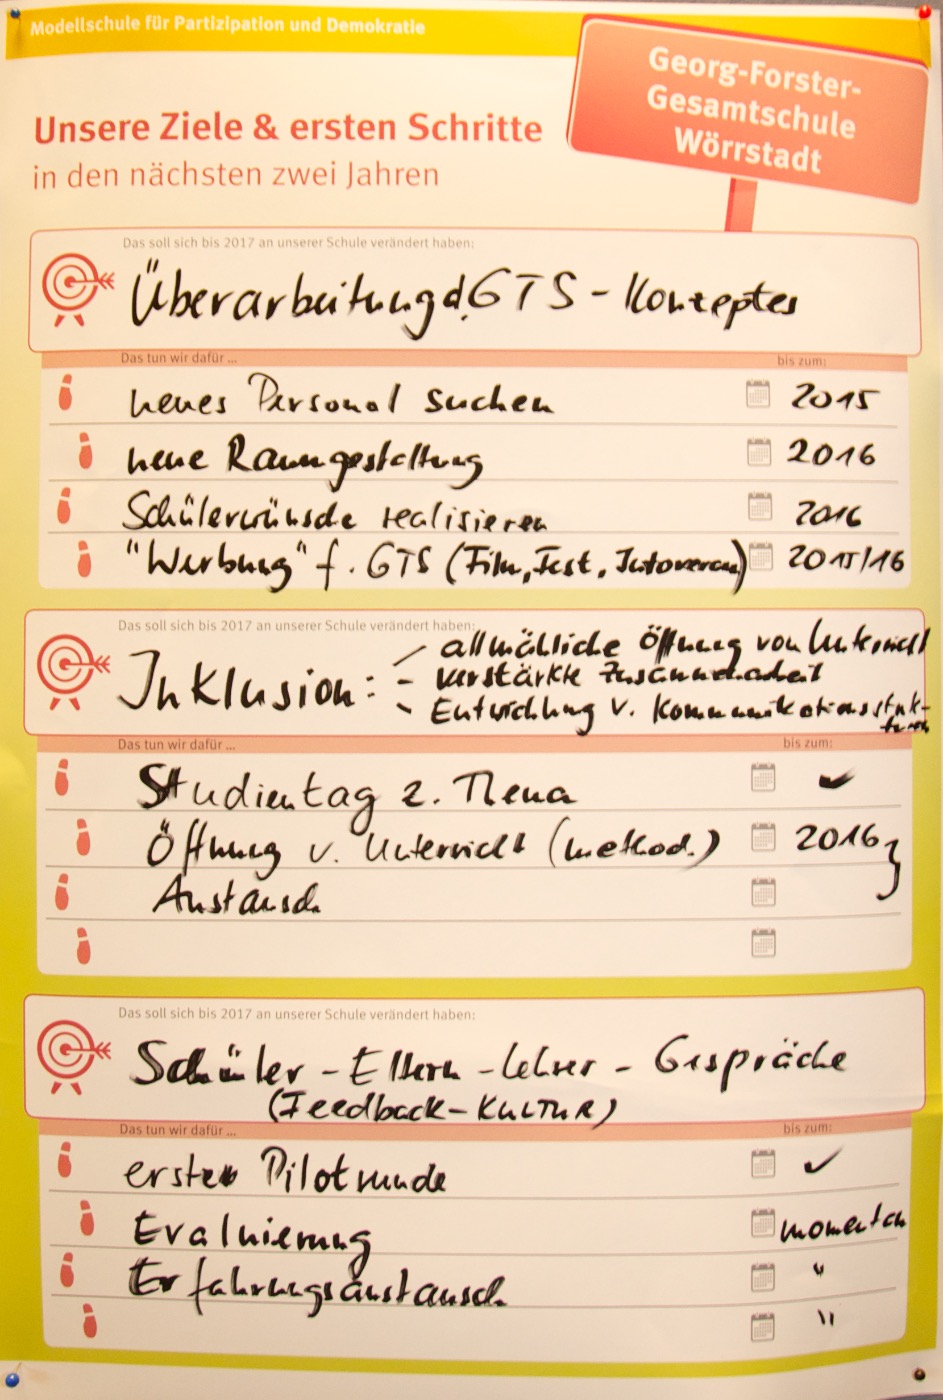 Modellschule für Partizipation und Demokratie
Georg-Forster-
Gesamtschule
Wörrstadt
Unsere Ziele & ersten Schritte
in den nächsten zwei Jahren
Das soll sich bis 2017 an unserer Schule verändert haben:
Überarbeitung d. GTS - Konzeptes
Das tun wir dafür ... bis zum:
neues Personal suchen 2015
neue Raumgestaltung 2016
Schülerwünsche realisieren 2016
"Werbung" f. GTS (Film, Fest, 2015/16
Das soll sich bis 2017 an unserer Schule verändert haben:
- allmähliche Öffnung von Unterricht
Inklusion: - verstärkte Zusammenarbeit
- Entwicklung v. Kommunikationsstruk-
turen
Das tun wir dafür ... bis zum:
Studientag z. Thema ✓
Öffnung v. Unterricht (method.) 2016 }
Austausch
Das soll sich bis 2017 an unserer Schule verändert haben:
Schüler - Eltern - Lehrer - Gespräche
(Feedback-KULTUR)
Das tun wir dafür ... bis zum:
erste Pilotrunde ✓
Evaluierung momentan
Erfahrungsaustausch "
"